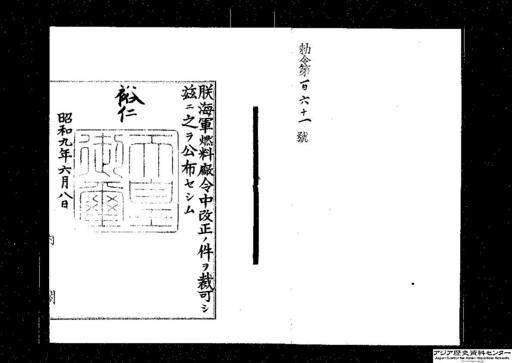 勅令第百六十一號
朕海軍燃料廠令中改正ノ件ヲ裁可シ
玆ニ之ヲ公布セシム
裕仁
天皇御璽
昭和九年六月八日
内閣
アジア歴史資料センター
Japan Center for Asian Historical Records